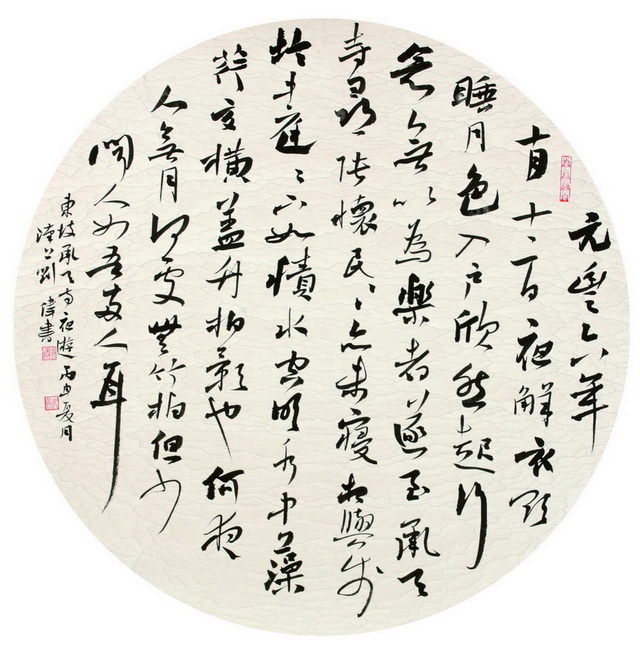 元豐六年
十月十二日夜解衣欲
睡月色入戶欣然起行
念無以為樂者遂至承天
寺尋張懷民〻亦未寢相與步
於中庭〻下如積水空明水中藻
荇交橫蓋竹柏影也何夜
人無月何處無竹柏但少
閒人如吾兩人耳
東坡承天寺夜遊丙申夏月
劉偉書